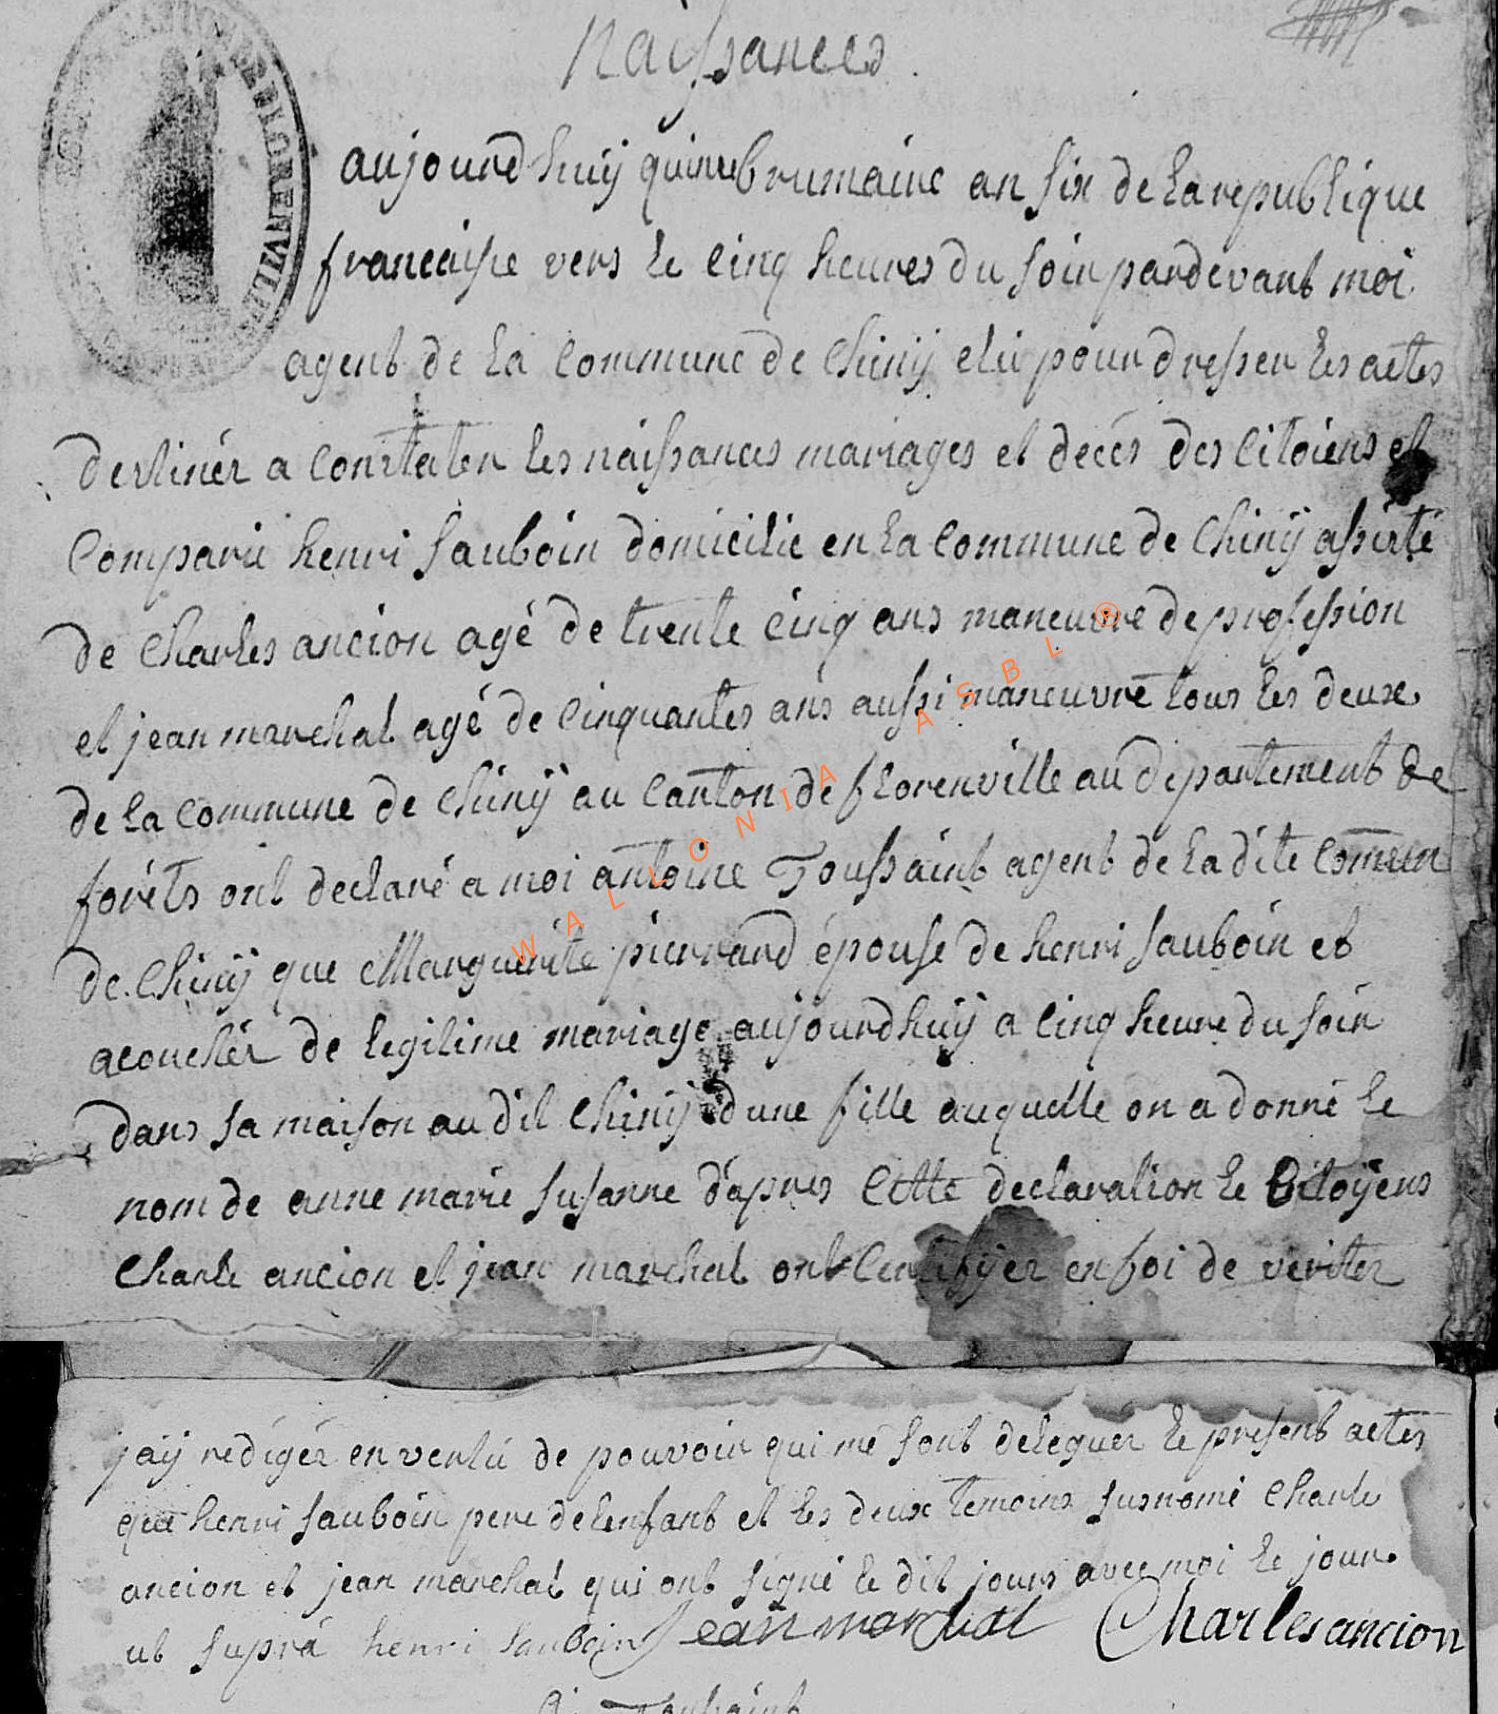 Naissances
aujourd huÿ quinze brumaire an six de la republique
francaisse vers le cinq heures du soir pardevant moi
agent de la commune de chinÿ elu pour dresser les actes
destinér a constater les naissances mariages et decés des citoiens et
comparu henri sauboin domicilié en la commune de chinÿ assisté
de charles ancion agé de trente cinq ans maneuvre de profession
et jean marchal agé de cinquantes ans aussi maneuvre tous les deux
de la commune de chinÿ au canton de florenville au departement de
foréts ont declaré a moi antoine Toussaint agent de la dite commun
de chinÿ que Marguerite pierrard épouse de henri sauboin et
acouchér de legitime mariage aujourdhuÿ a cinq heure du soir
dans sa maison au dit chinÿ dune fille auquelle on a donné le
nom de anne marie susanne dapres cette declaration le citoÿens
charle ancion et jean marchal ont certifÿer en foi de veriter
jaÿ redigér en vertú de pouvoir qui me sont deleguér le present actes
que henri sauboin pere de lenfant et les deux temoins susnomé charle
ancion et jean marchal qui ont signé le dit jours avec moi le jour
ut suprá henri sauboin Jean marchal Charles ancion
Toussaint
FLORENVILLE
WALLONIA ASBL ®